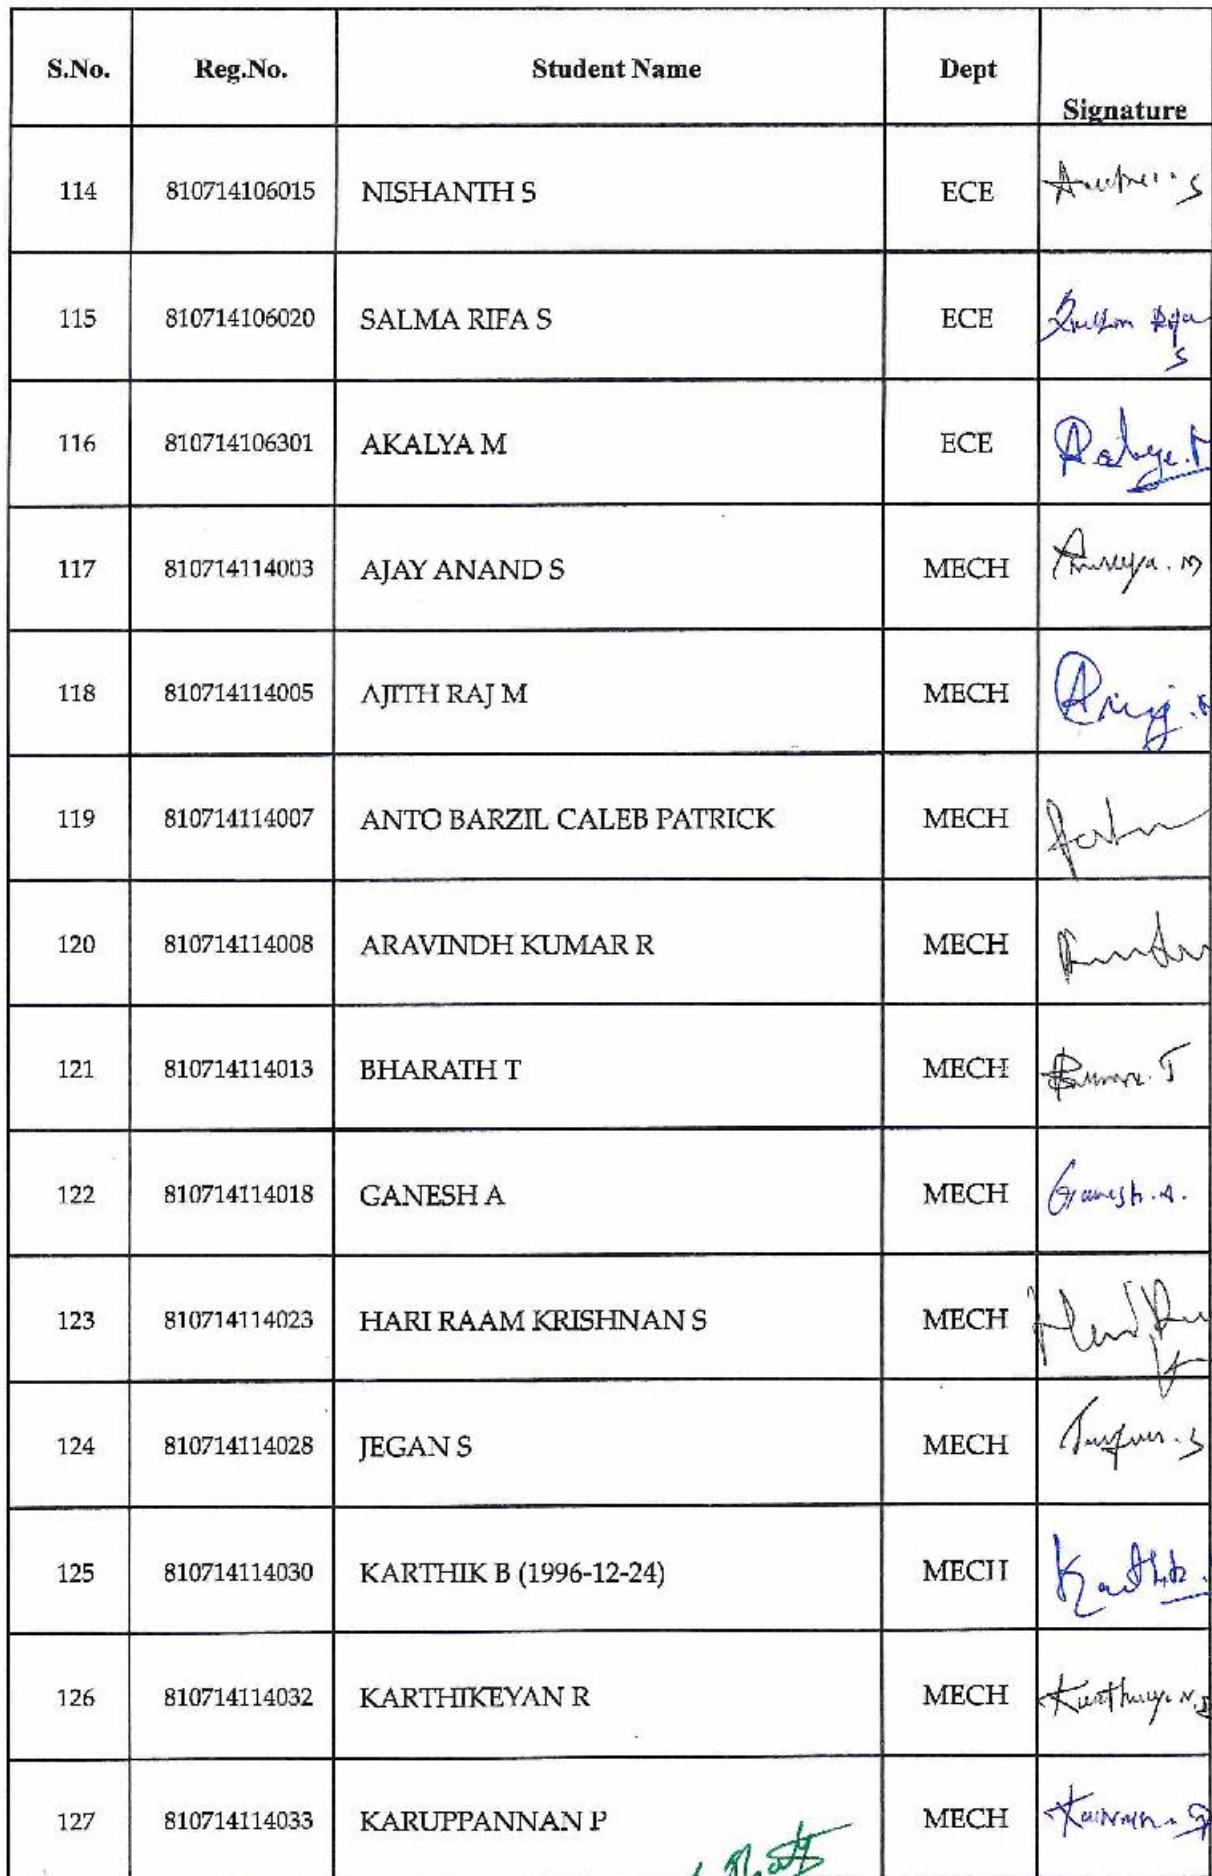 S.No. Reg.No. Student Name Dept Signature
114 810714106015 NISHANTH S ECE
115 810714106020 SALMA RIFA S ECE
116 810714106301 AKALYA M ECE
117 810714114003 AJAY ANAND S MECH
118 810714114005 AJITH RAJ M MECH
119 810714114007 ANTO BARZIL CALEB PATRICK MECH
120 810714114008 ARAVINDH KUMAR R MECH
121 810714114013 BHARATH T MECH
122 810714114018 GANESH A MECH Ganesh.A.
123 810714114023 HARI RAAM KRISHNAN S MECH
124 810714114028 JEGAN S MECH
125 810714114030 KARTHIK B (1996-12-24) MECH Karthik.
126 810714114032 KARTHIKEYAN R MECH
127 810714114033 KARUPPANNAN P MECH